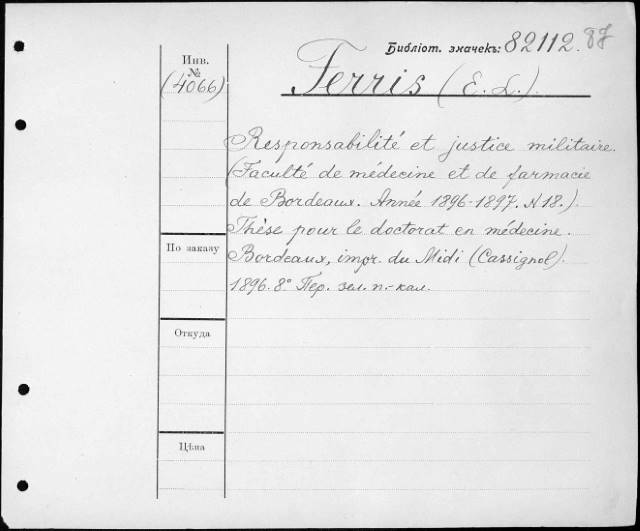 Библіот. значекъ: 82112. 87
Инв. №
(4066)
Ferris (E. L.).
Responsabilité et justice militaire.
(Faculté de médecine et de farmacie
de Bordeaux. Année 1896-1897. N 18.)
Thèse pour le doctorat en médecine.
Bordeaux, impr. du Midi (Cassignol).
1896. 8º Пер. зел. п.-кал.
По заказу
Откуда
Цѣна